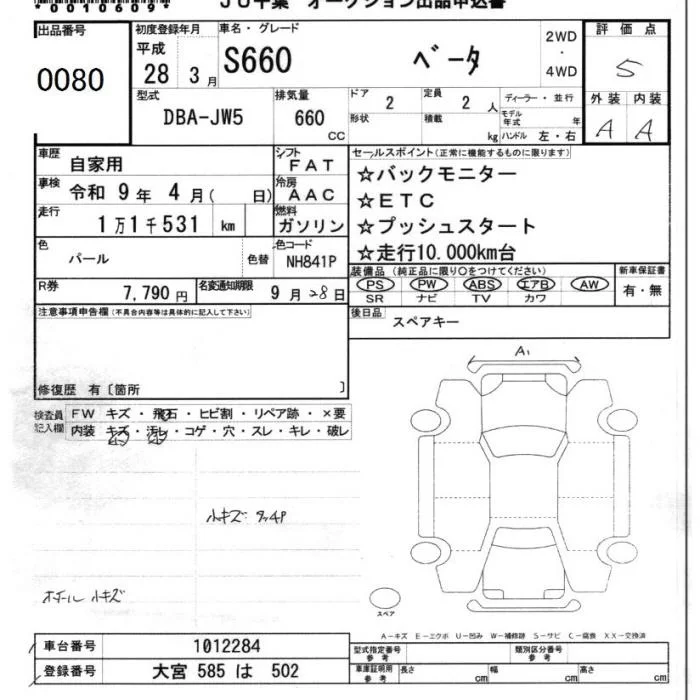 *0010609*
JU千葉 オークション出品申込書
出品番号
0080
初度登録年月
平成
28 3月
車名・グレード
S660 ベータ
2WD
・
4WD
評価点
5
外装 内装
A A
型式
DBA-JW5
排気量
660
CC
ドア 2
定員 2人
形状
積載 kg
ディーラー・並行
モデル年式 年
ハンドル 左・右
車歴
自家用
シフト
FAT
車検
令和 9年 4月( 日)
冷房
AAC
走行
1万1千531 km
燃料
ガソリン
色
パール
色替
色コード
NH841P
R券
7,790円
名変通知期限
9月28日
セールスポイント(正常に機能するものに限ります)
☆バックモニター
☆ETC
☆プッシュスタート
☆走行10.000km台
装備品(純正品に限り○をつけてください)
PS PW ABS エアB AW
SR ナビ TV カワ
新車保証書
有・無
後日品
スペアキー
注意事項申告欄(不具合内容等は具体的に記入して下さい)
修復歴 有〔箇所 〕
検査員記入欄
FW キズ・飛石・ヒビ割・リペア跡・×要
内装 キズ・汚レ・コゲ・穴・スレ・キレ・破レ
小キズ
ホイール小キズ
A1
スペア
A-キズ E-エクボ U-凹み W-補修跡 S-サビ C-腐食 XX-交換済
車台番号 1012284
登録番号 大宮 585 は 502
型式指定番号
参考
類別区分番号
参考
車庫証明用
参考
長さ cm
幅 cm
高さ cm